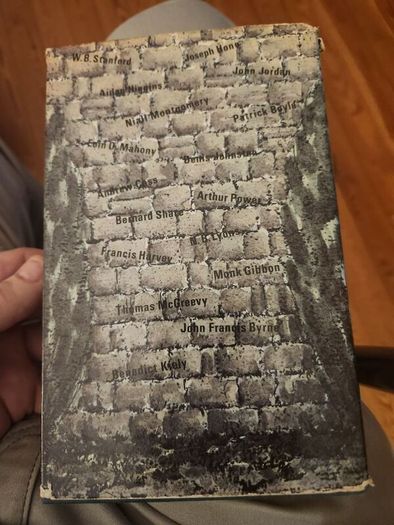 W.B. Stanford
Joseph Hone
John Jordan
Aidan Higgins
Niall Montgomery
Patrick Boyle
Eoin O. Mahony
Denis Johnston
Andrew Cass
Arthur Power
Bernard Share
N.B. Lyon
Francis Harvey
Monk Gibbon
Thomas McGreevy
John Francis Byrne
Benedict Kiely